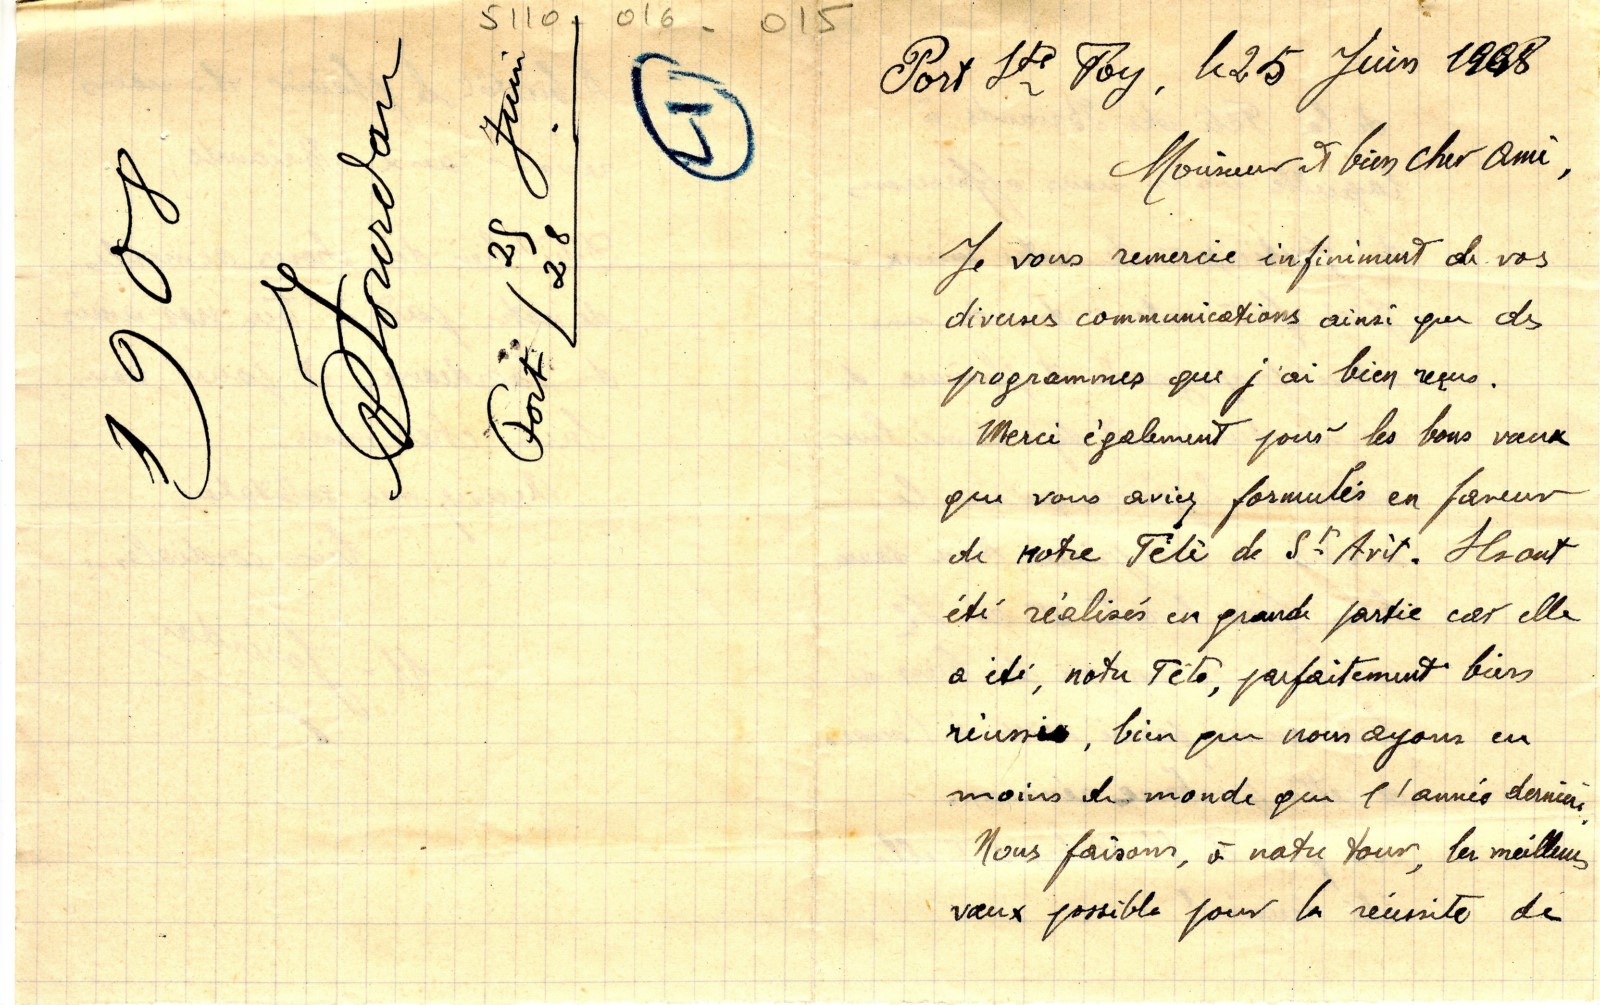 5110 - 016 - 015
1908
Jourdan
Port 25 Juin
28
Port Ste Foy, le 25 Juin 1908
Monsieur et bien cher ami,
Je vous remercie infiniment de vos
diverses communications ainsi que des
programmes que j'ai bien reçus.
Merci également pour les bons vœux
que vous aviez formulés en faveur
de notre Fête de St Avit. Ils ont
été réalisés en grande partie car elle
a été, notre Fête, parfaitement bien
réussie, bien que nous ayons eu
moins de monde que l'année dernière.
Nous faisons, à notre tour, les meilleurs
vœux possible pour la réussite de